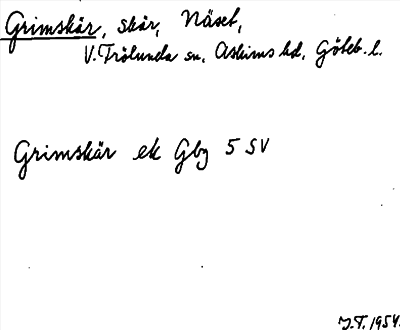 Grimskär, skär, Näset,
V. Frölunda sn, Askims hd, Göteb. l.
Grimskär ek Gbg 5 SV
J.T. 1954.